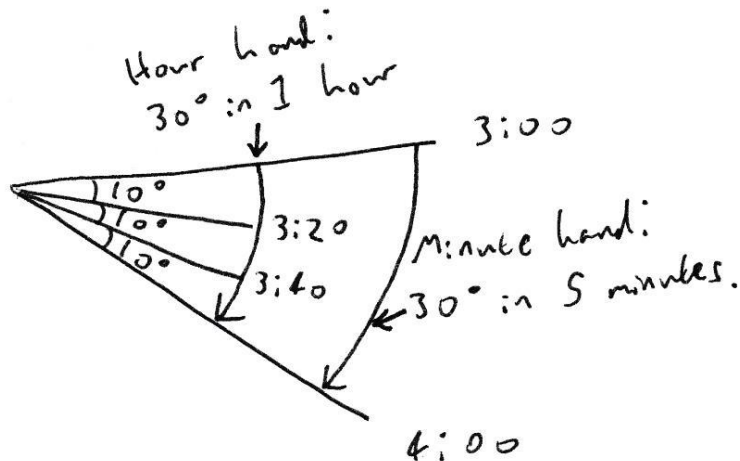 Hour hand:
30° in 1 hour
3:00
10°
10°
10°
3:20
3:40
Minute hand:
30° in 5 minutes.
4:00